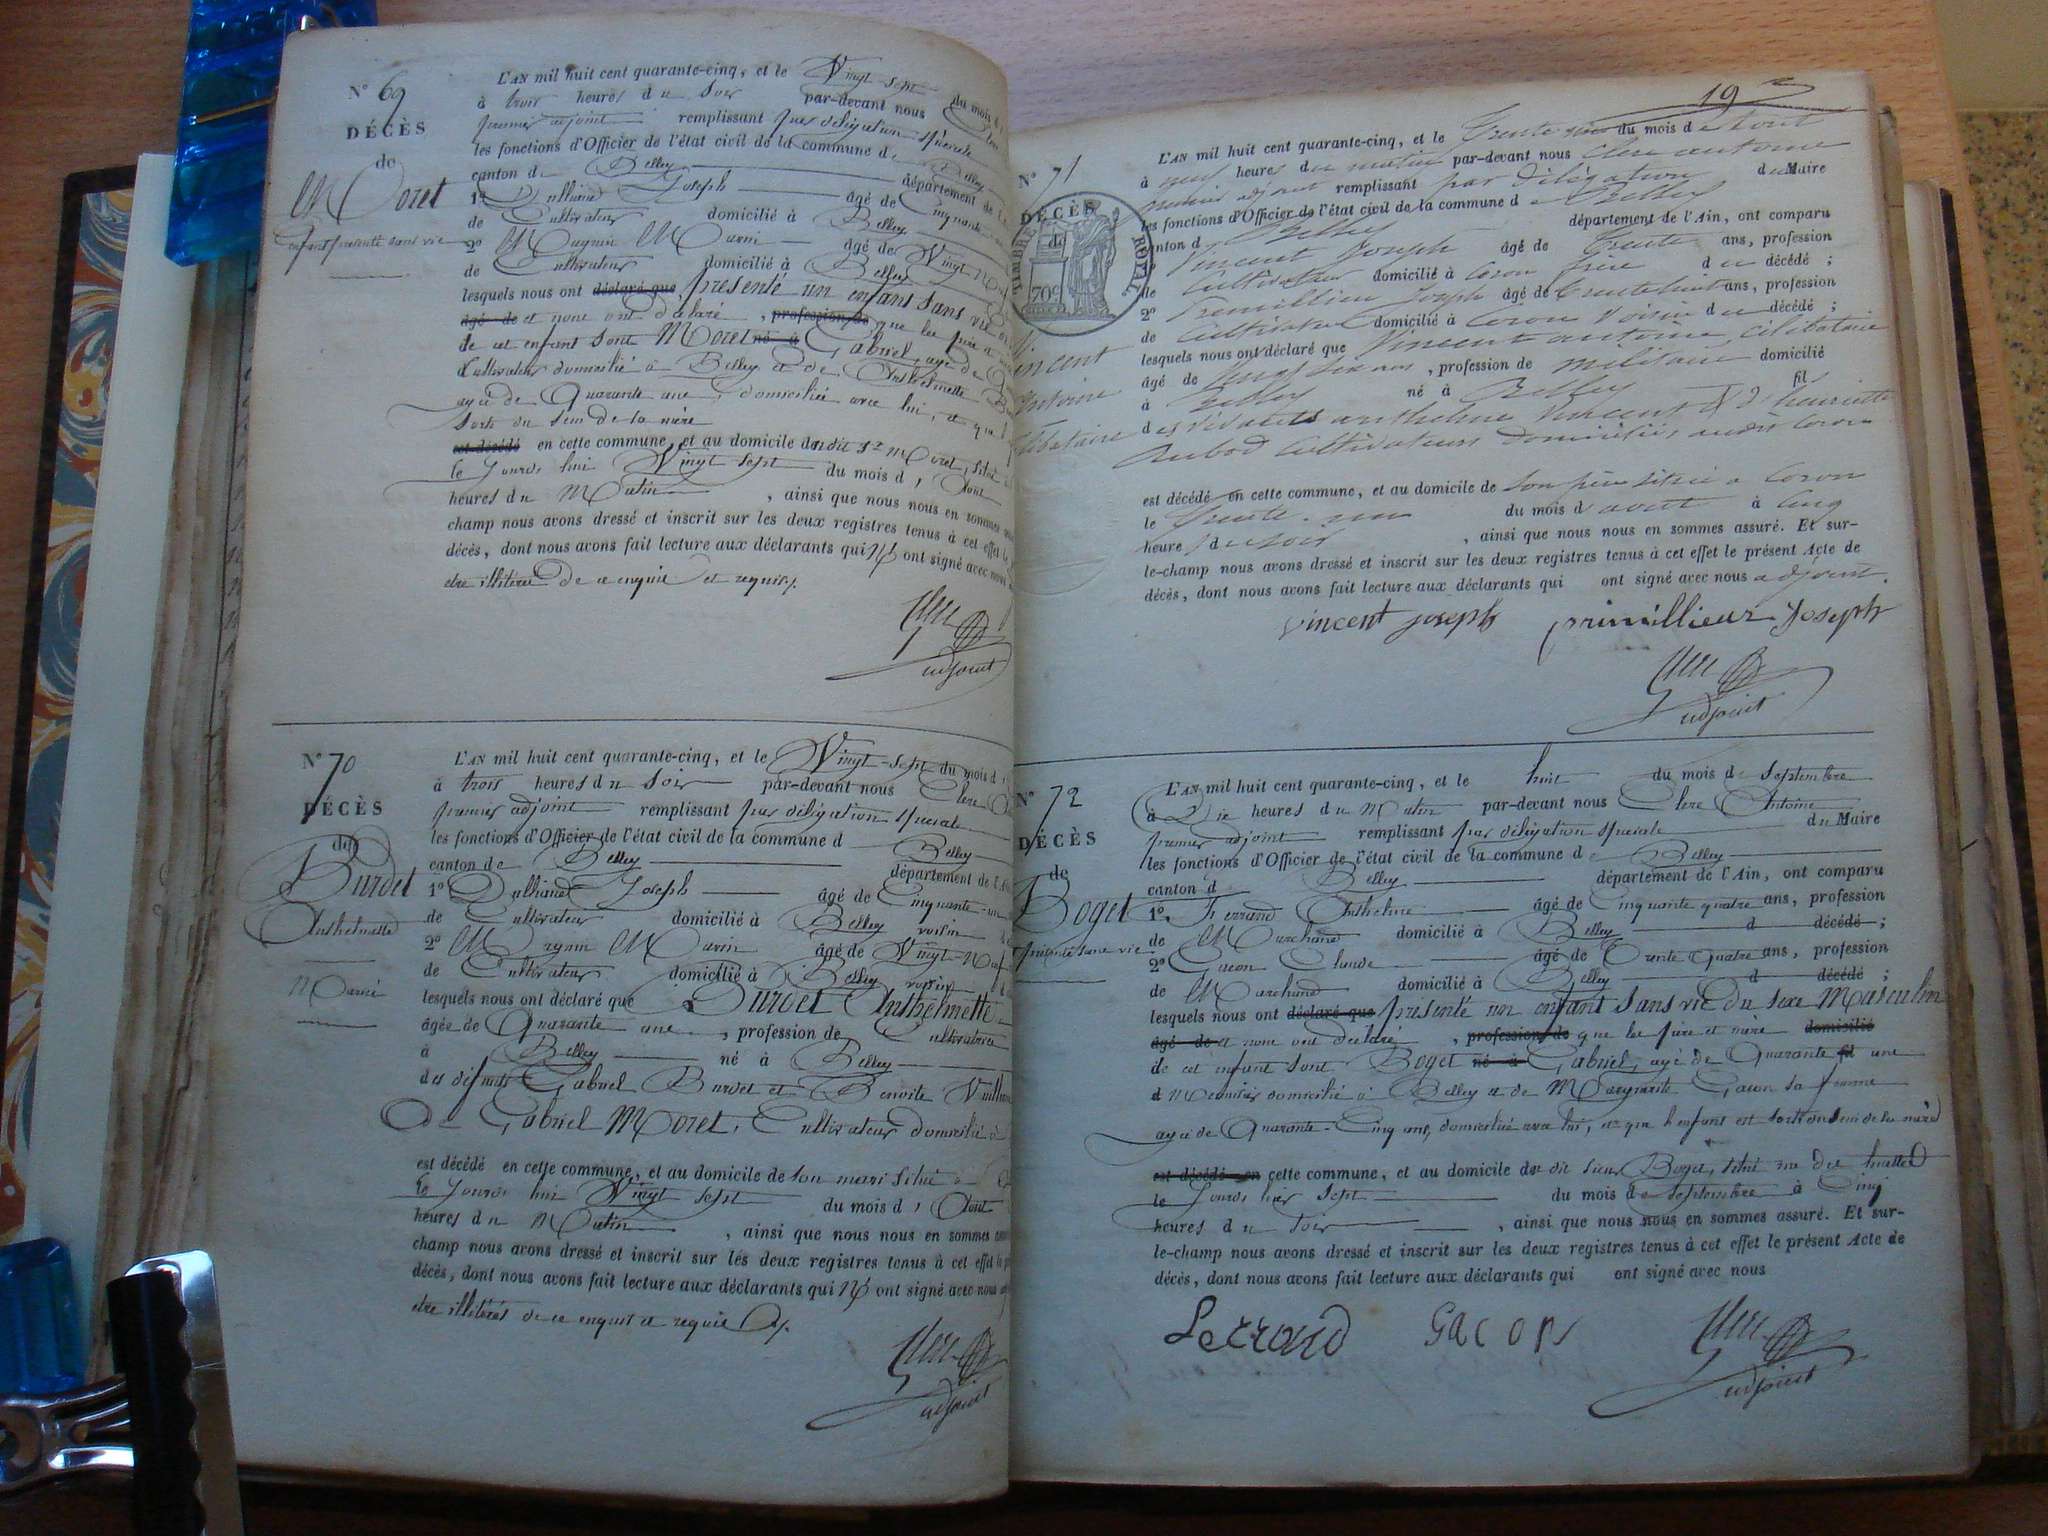 N° 69
DÉCÈS
de
Moret
enfant présenté sans vie
L'AN mil huit cent quarante-cinq, et le Vingt-sept du mois d
à trois heures du soir par-devant nous
premier adjoint remplissant par délégation spéciale
les fonctions d'Officier de l'état civil de la commune de Belley
canton de Belley département de l
1° Dulliand Joseph âgé de Cinquante
de Cultivateur domicilié à Belley
2° Magnin Marin âgé de Vingt-Neuf
de Cultivateur domicilié à Belley
lesquels nous ont déclaré que présenté un enfant sans vie
âgé de et nous ont déclaré , profession de que les père et
de cet enfant sont Moret né à Gabriel, âgé de
Cultivateur domicilié à Belley et de Anthelmette
âgée de Quarante ans, domiciliée avec lui, et que l
sorti du sein de la mère
est décédé en cette commune, et au domicile du dit Sr Moret, situé
le jourd'hui Vingt sept du mois d'Aout
heures du Matin , ainsi que nous nous en sommes
champ nous avons dressé et inscrit sur les deux registres tenus à cet effet le
décès, dont nous avons fait lecture aux déclarants qui N' ont signé avec nous
etre illitérés de ce enquis et requis.
Clerc
adjoint
N° 70
DÉCÈS
de
Burdet
Anthelmette
Marié
L'AN mil huit cent quarante-cinq, et le Vingt-sept du mois d
à trois heures du soir par-devant nous Clerc
premier adjoint remplissant par délégation spéciale
les fonctions d'Officier de l'état civil de la commune d Belley
canton de Belley département de l'
1° Dulliand Joseph âgé de Cinquante-un
de Cultivateur domicilié à Belley voisin
2° Magnin Marin âgé de Vingt-Neuf
de Cultivateur domicilié à Belley voisin
lesquels nous ont déclaré que Burdet Anthelmette
âgée de Quarante ans , profession de Cultivatrice
à Belley né à Belley
des défunts Gabriel Burdet et Benoite
De Gabriel Moret, Cultivateur domicilié à
est décédé en cette commune, et au domicile de son mari situé à
le jourd'hui Vingt sept du mois d'Aout
heures du Matin , ainsi que nous nous en sommes
champ nous avons dressé et inscrit sur les deux registres tenus à cet effet le
décès, dont nous avons fait lecture aux déclarants qui N' ont signé avec nous
etre illitérés de ce enquis et requis.
Clerc
adjoint
19
N° 71
DÉCÈS
de
TIMBRE ROYAL
70c
Vincent
Antoine
Célibataire
L'AN mil huit cent quarante-cinq, et le Trente un du mois d'aout
à heures du matin par-devant nous Clerc antoine
premier adjoint remplissant par délégation du Maire
les fonctions d'Officier de l'état civil de la commune de Belley
canton d Belley département de l'Ain, ont comparu
Vincent Joseph âgé de Trente ans, profession
de Cultivateur domicilié à Coron frère du décédé ;
2° Premillieu Joseph âgé de trente huit ans, profession
de Cultivateur domicilié à Coron voisin du décédé ;
lesquels nous ont déclaré que Vincent antoine, célibataire
âgé de Vingt six ans , profession de militaire domicilié
à Belley né à Belley fil
des défunts anthelme Vincent & d'henriette
Aubod Cultivateurs domiciliés audit Coron
est décédé en cette commune, et au domicile de son père situé à Coron
le trente-un du mois d'aout à cinq
heure du soir , ainsi que nous nous en sommes assuré. Et sur-
le-champ nous avons dressé et inscrit sur les deux registres tenus à cet effet le présent Acte de
décès, dont nous avons fait lecture aux déclarants qui ont signé avec nous adjoint.
vincent joseph primillieux Joseph
Clerc
adjoint
N° 72
DÉCÈS
de
Boget
présenté sans vie
L'AN mil huit cent quarante-cinq, et le huit du mois de Septembre
à Dix heures du Matin par-devant nous Clerc Antoine
premier adjoint remplissant par délégation spéciale du Maire
les fonctions d'Officier de l'état civil de la commune de Belley
canton d Belley département de l'Ain, ont comparu
1° Ferrand Anthelme âgé de Cinquante quatre ans, profession
de Marchand domicilié à Belley d décédé ;
2° Gacon Claude âgé de Trente Quatre ans, profession
de Marchand domicilié à Belley d décédé ;
lesquels nous ont déclaré que présenté un enfant sans vie du sexe Masculin
âgé de et nous ont déclaré , profession de que les père et mère domicilié
de cet enfant sont Boget né à Gabriel, âgé de Quarante fil une
d Menuisier domicilié à Belley et de Marguerite Gacon sa femme
agée de Quarante-Cinq ans, domiciliée avec lui, et que l'enfant est sorti du sein de la mère
est décédé en cette commune, et au domicile du dit sieur Boget, situé rue des
le jourd'hier sept du mois de septembre à Cinq
heures du soir , ainsi que nous nous en sommes assuré. Et sur-
le-champ nous avons dressé et inscrit sur les deux registres tenus à cet effet le présent Acte de
décès, dont nous avons fait lecture aux déclarants qui ont signé avec nous
Ferrand Gacon Clerc
adjoint